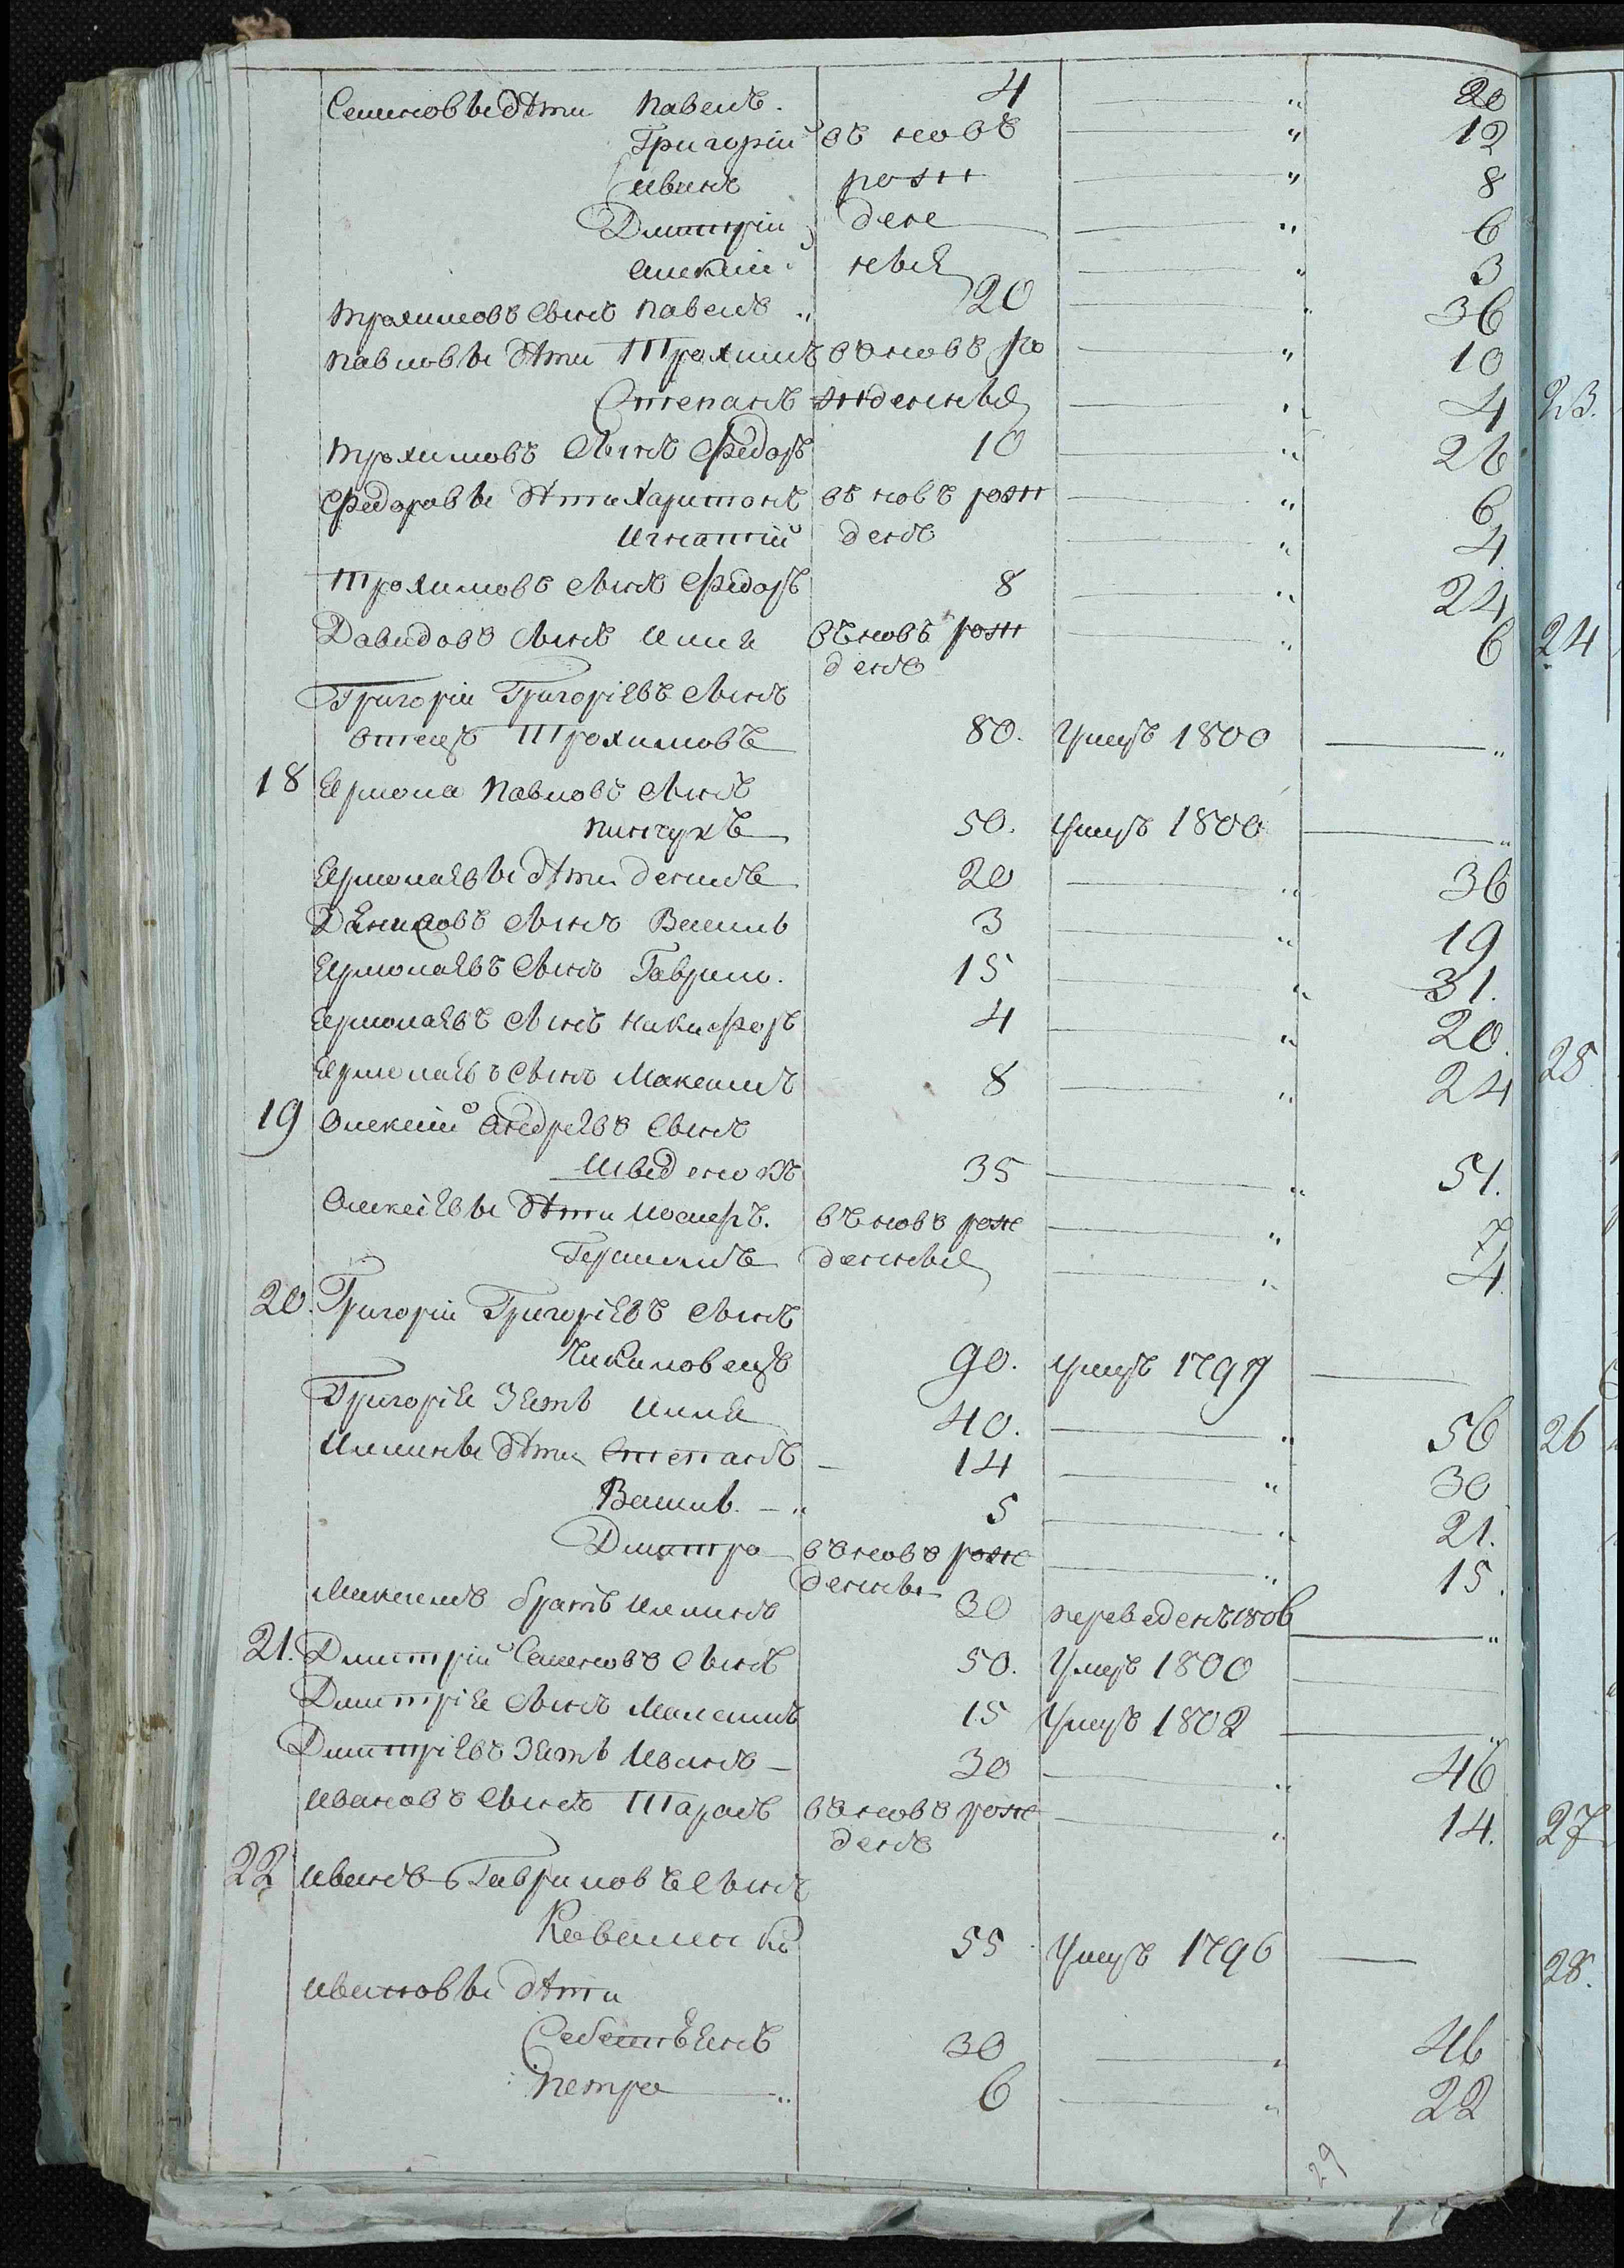 Семеновы дѣти Павелъ. 4 — „ 20
Григорій въ новъ — „ 12
Иванъ рож — „ 8
Дмитрій дене — „ 6
Алексій ныя — „ 3
Трохимовъ сынъ Павелъ „ 20 — „ 36
Павловы дѣти Трохимъ въ новъ ро — „ 10
Степанъ жденныя — „ 4
Трохимовъ сынъ Федоръ 10 — „ 26
Федоровы дѣти Харитонъ въ новъ рож — „ 6
Игнатій денъ — „ 4
Трохимовъ сынъ Федоръ 8 — „ 24
Давидовъ сынъ Илия въ новъ рож — „ 6
денъ
Григорій Григоріевъ сынъ
отецъ Трохимовъ 80. Умеръ 1800 — „
18 Ермола Павловъ сынъ
Пинчукъ 50. Умеръ 1800 — „
Ермолаевы дѣти Денисъ 20 — „ 36
Денисовъ сынъ Василь 3 — „ 19
Ермолаевъ сынъ Гаврило. 15 — „ 31.
Ермолаевъ сынъ Никифоръ 4 — „ 20.
Ермолаевъ сынъ Максимъ 8 — „ 24
19 Олексій Андреевъ сынъ
Шведенокъ 35 — „ 51.
Олексіевы дѣти Иосифъ. въ новъ рож — „ 7
Герасимъ денныя — „ 4.
20. Григорій Григоріевъ сынъ
90. умеръ 1797 —
Григорія Зять Илия 40. — „ 56
Илиины дѣти Степанъ — 14 — „ 30
Василь. — „ 5 — „ 21.
Дмитро въ новъ рож — „ 15.
денны
Максимъ братъ Илиинъ 30 переведенъ 1806 — „
21. Дмитрій Семеновъ сынъ 50. Умеръ 1800 —
Дмитрія сынъ Максимъ 15 Умеръ 1802 — „
Дмитріевъ Зять Иванъ — 30 — „ 46
Ивановъ сынъ Тарасъ въ новъ рож — „ 14.
денъ
22 Иванъ Гавриловъ сынъ
55 Умеръ 1796 —
Ивановы дѣти
Себестьянъ 30 — „ 46
Петро — „ 6 — „ 22
29
23.
24
25
26
27
28.